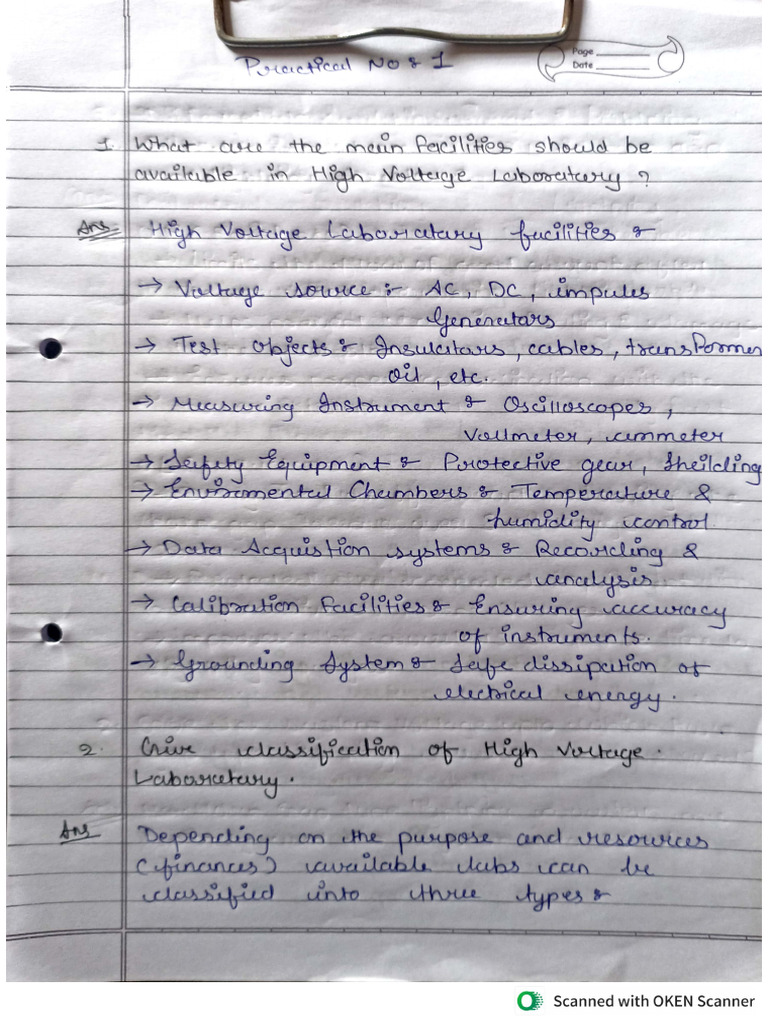 Practical No : 1
Page
Date
1. What are the main facilities should be
available in High Voltage Laboratary ?
Ans High Voltage Laboratary facilities :
→ Voltage source :- AC, DC, impules
Generators
→ Test Objects : Insulators, cables, transformer
oil, etc.
→ Measuring Instrument : Oscilloscopes,
Vollmeter, ammeter
→ Safety Equipment : Protective gear, Sheilding
→ Enviromental Chambers : Temperature &
humidity control
→ Data Acquistion systems : Recording &
analysis.
→ Calibration Facilities : Ensuring accuracy
of instruments.
→ Grounding System : Safe dissipation of
electrical energy.
2. Give classification of High Voltage.
Laboratary.
Ans Depending on the purpose and resources
(finances) available labs can be
classified into three types :
Scanned with OKEN Scanner